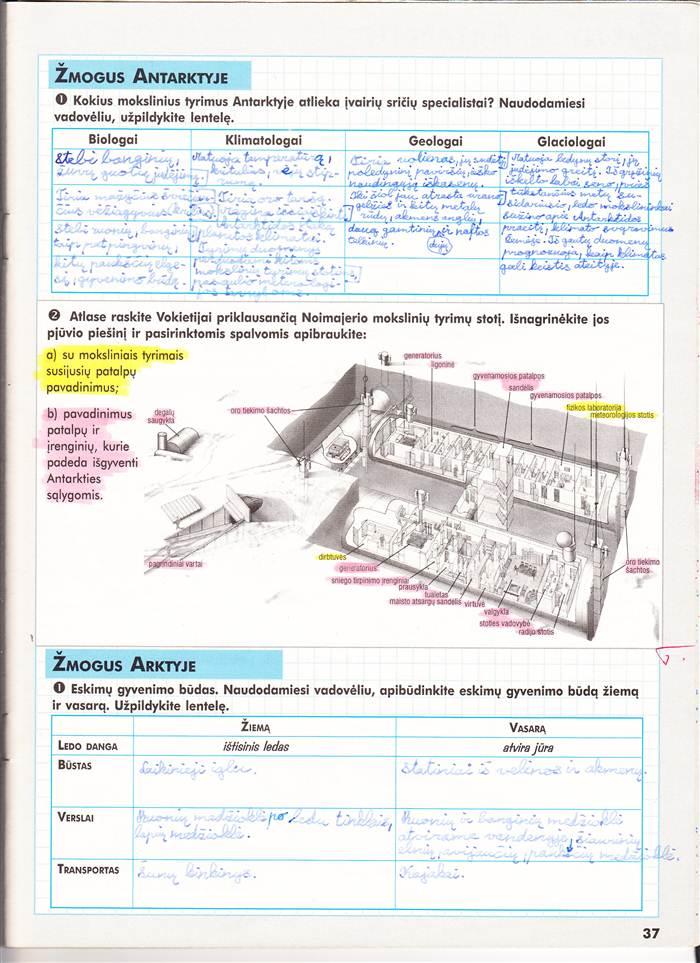 ŽMOGUS ANTARKTYJE
❶ Kokius mokslinius tyrimus Antarktyje atlieka įvairių sričių specialistai? Naudodamiesi
vadovėliu, užpildykite lentelę.
Biologai Klimatologai Geologai Glaciologai
Stebi banginių,
žuvų guotų judėjimą.
stebi ruonių, banginių
taip pat pingvinų,
kitų paukščių elge-
sį, gyvenimo būdą.
Matuoja temperatūrą,
kritulius, vėjų stip-
rumą.
Tyrimų duomenys
mokslinių tyrimų
Tiria uolienas, jų sudėtį,
poledyninį paviršių, ieško
naudingųjų iškasenų.
Iki šiol jau atrasta urano,
geležies ir kitų metalų
rūdų, akmens anglių,
daug gamtinių ir naftos
telkinių. dujų
Matuoja ledynų storį, jų
judėjimo greitį. Iš gręžinių
iškelto labai seno, prieš
tūkstančius metų su-
sidariusio, ledo mokslininkai
sužino apie Antarktidos
praeitį, klimato svyravimus
Žemėje. Iš gautų duomenų
prognozuoja, kaip klimatas
gali keistis ateityje.
❷ Atlase raskite Vokietijai priklausančią Noimajerio mokslinių tyrimų stotį. Išnagrinėkite jos
pjūvio piešinį ir pasirinktomis spalvomis apibraukite:
a) su moksliniais tyrimais
susijusių patalpų
pavadinimus;
b) pavadinimus
patalpų ir
įrenginių, kurie
padeda išgyventi
Antarkties
sąlygomis.
generatorius
ligoninė
gyvenamosios patalpos
sandėlis
gyvenamosios patalpos
fizikos laboratorija
meteorologijos stotis
degalų
saugykla
oro tiekimo šachtos
pagrindiniai vartai
dirbtuvės
generatorius
sniego tirpinimo įrenginiai
prausykla
tualetas
maisto atsargų sandėlis
virtuvė
valgykla
stoties vadovybė
radijo stotis
oro tiekimo
šachtos
ŽMOGUS ARKTYJE
❶ Eskimų gyvenimo būdas. Naudodamiesi vadovėliu, apibūdinkite eskimų gyvenimo būdą žiemą
ir vasarą. Užpildykite lentelę.
ŽIEMĄ VASARĄ
LEDO DANGA ištisinis ledas atvira jūra
BŪSTAS Laikinieji iglu. Statiniai iš velėnos ir akmenų.
VERSLAI Ruonių medžioklė po ledu tinklais,
lapių medžioklė.
Ruonių ir banginių medžioklė
atvirame vandenyje, šiaurinių
elnių, avijaučių, paukščių medžioklė.
TRANSPORTAS Šunų kinkinys. Kajakai.
37